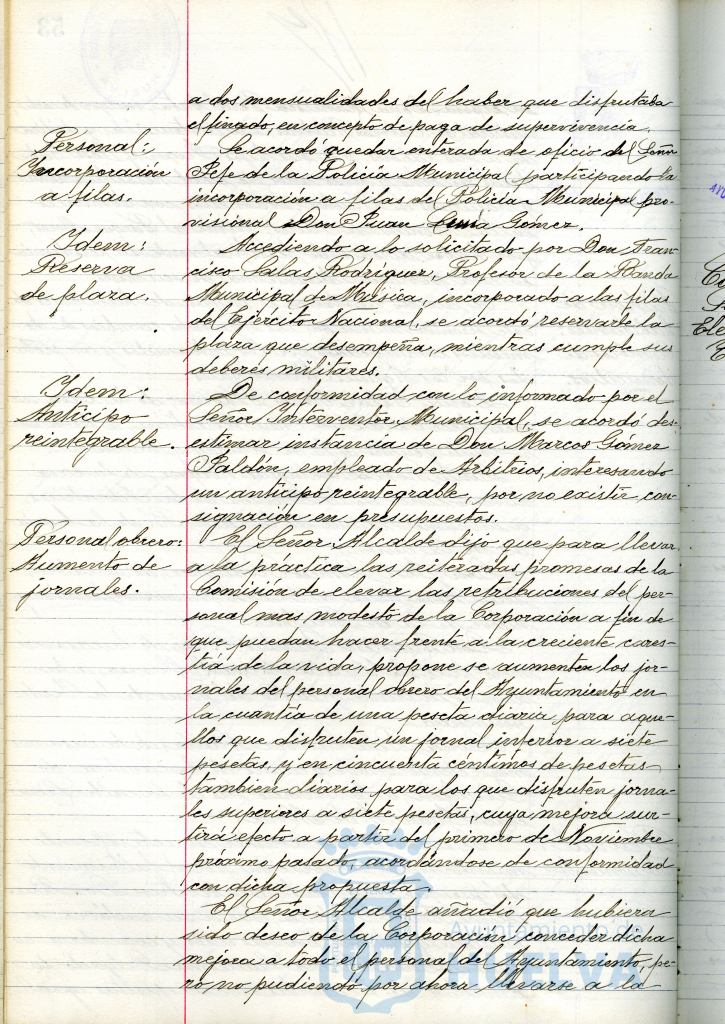 a dos mensualidades del haber que disfrutaba
el finado, en concepto de paga de supervivencia.
Personal:
Incorporación
a filas.
Se acordó quedar enterada de oficio del Señor
Jefe de la Policía Municipal participando la
incorporación a filas del Policía Municipal pro-
visional Don Juan Gómez.
Idem:
Reserva
de plaza.
Accediendo a lo solicitado por Don Fran-
cisco Salas Rodríguez, Profesor de la Banda
Municipal de Música, incorporado a las filas
del Ejército Nacional, se acordó reservarle la
plaza que desempeña, mientras cumple sus
deberes militares.
Idem:
Anticipo
reintegrable.
De conformidad con lo informado por el
Señor Interventor Municipal, se acordó des-
estimar instancia de Don Marcos Gómez
empleado de Arbitrios, interesando
un anticipo reintegrable, por no existir con-
signación en presupuestos.
Personal obrero:
Aumento de
jornales.
El Señor Alcalde dijo que para llevar
a la practica las reiteradas promesas de la
Comisión de elevar las retribuciones del per-
sonal mas modesto de la Corporación a fin de
que puedan hacer frente a la creciente cares-
tía de la vida, propone se aumenten los jor-
nales del personal obrero del Ayuntamiento en
la cuantía de una peseta diaria para aque-
llos que disfruten un jornal inferior a siete
pesetas, y en cincuenta céntimos de pesetas
tambien diarios para los que disfruten jorna-
les superiores a siete pesetas, cuya mejora sur-
tirá efecto a partir del primero de Noviembre
próximo pasado, acordándose de conformidad
con dicha propuesta.
El Señor Alcalde añadió que hubiera
sido deseo de la Corporación conceder dicha
mejora a todo el personal del Ayuntamiento, pe-
ro no pudiendo por ahora llevarse a la
Ayuntamiento de
HUELVA